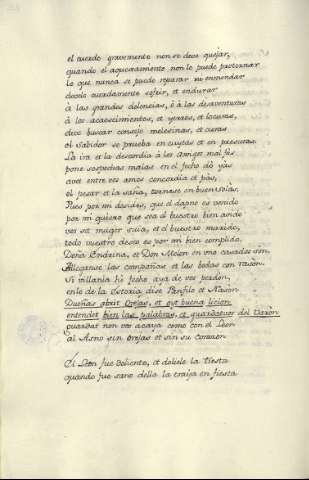 el cuerdo gravemente non se debe quejar,
quando el aquexamiento non le puede pro tornar
lo que nunca se puede reparar nin emmendar
debelo cuerdamente sofrir, et endurar
à las grandes dolencias, ò à las desaventuras
à los acaescimientos, et yerros, et locuras,
debe buscar consejo melecinas, et curas
el sabidor se prueba en cuytas et en presuras.
La ira et la descordia à los Amigos mal fas
pone sospechas malas en el fecho dò yas
aved entre vos amos concordia et pàs,
el pesar et la saña, tornase en buen solas.
Pues por mi desides, que el dapno es venido
por mi quiero que sea el buestro bien avido
vos sed muger suia, et el buestro marido,
todo vuestro deseo es por mi bien complido.
Doña Endrina, et Don Melon en uno casados son
Alegranse las compañas et las bodas con rason.
Si villania hè fecho aya de vos perdon,
en lo de la Estoria dise Panfilo et Nason.
Dueñas abrit Orejas, et oyt buena licion
entendet bien las palabras, et guardatvos del Varon
guardat non vos acaya como con el Leon
al Asno sin Orejas et sin su Corazon
El Leon fue doliente, et doliele la tiesta
quando fue sano della la traìa en fiesta